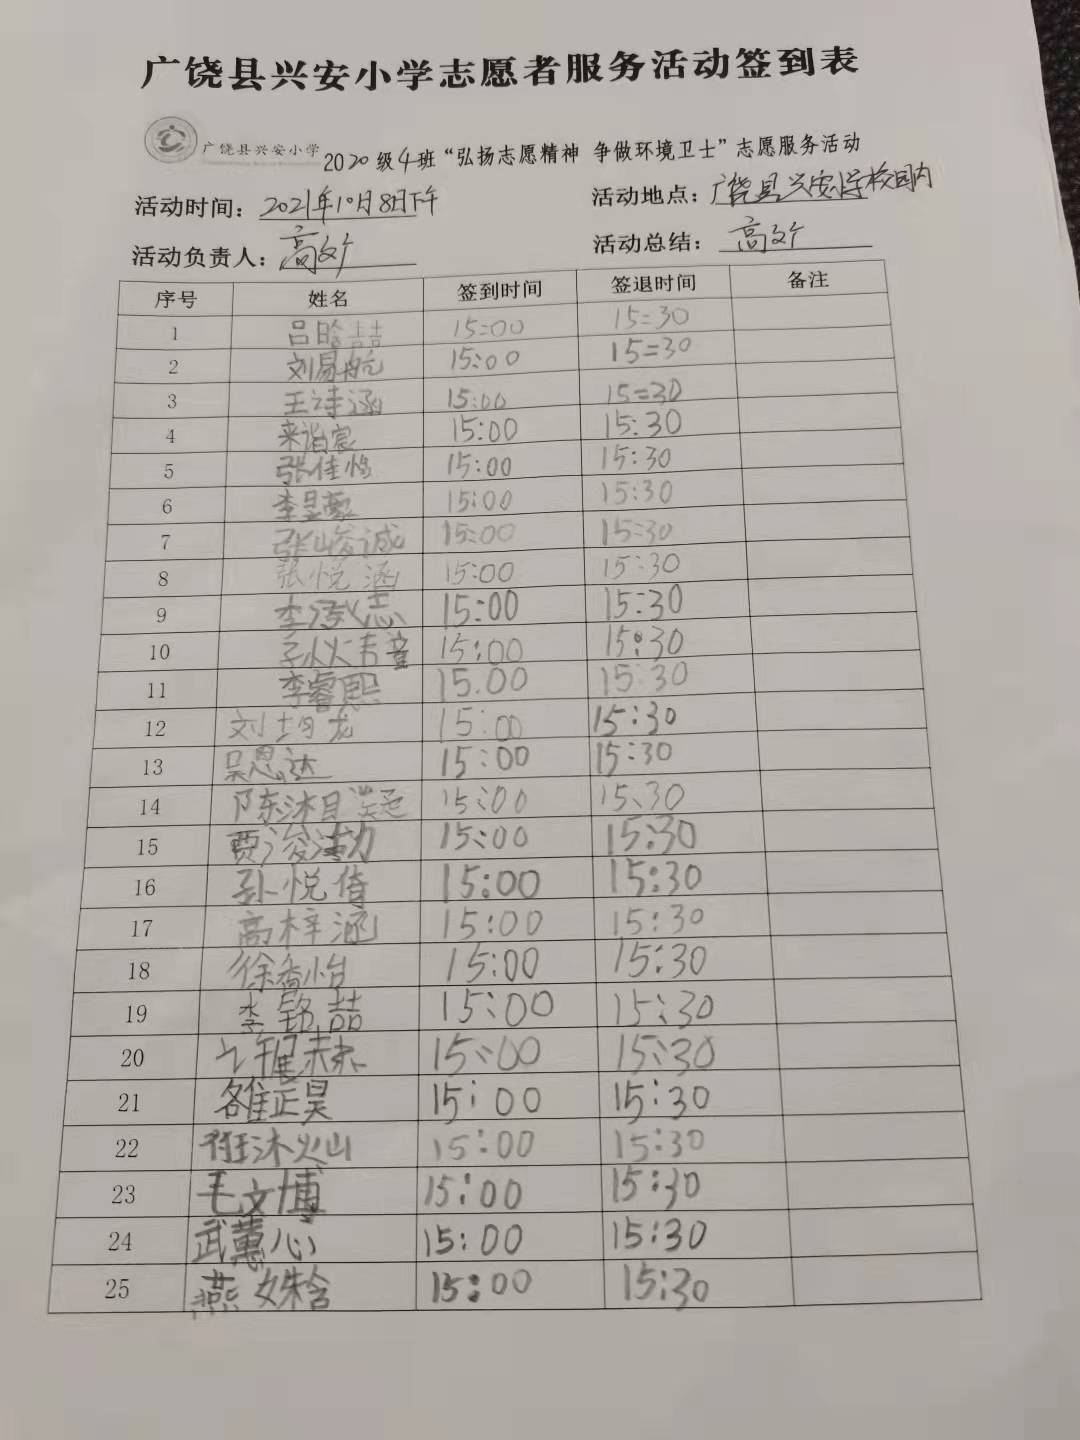 广饶县兴安小学志愿者服务活动签到表
广饶县兴安小学 2020级4班“弘扬志愿精神 争做环境卫士”志愿服务活动
活动时间：2021年10月8日下午 活动地点：广饶县兴安小学校园内
活动负责人：高文 活动总结：高文
序号 姓名 签到时间 签退时间 备注
1 吕晗喆 15:00 15:30
2 刘易航 15:00 15:30
3 王诗涵 15:00 15:30
4 来诣宸 15:00 15:30
5 张佳怡 15:00 15:30
6 李昱豪 15:00 15:30
7 张峻诚 15:00 15:30
8 张悦涵 15:00 15:30
9 李泓志 15:00 15:30
10 15:00 15:30
11 李睿熙 15:00 15:30
12 刘均龙 15:00 15:30
13 吴思达 15:00 15:30
14 陈沐 15:00 15:30
15 贾浚 15:00 15:30
16 孙悦倚 15:00 15:30
17 高梓涵 15:00 15:30
18 徐香怡 15:00 15:30
19 李喆 15:00 15:30
20 15:00 15:30
21 正昊 15:00 15:30
22 沐灿 15:00 15:30
23 毛文博 15:00 15:30
24 武蕙心 15:00 15:30
25 燕姝含 15:00 15:30